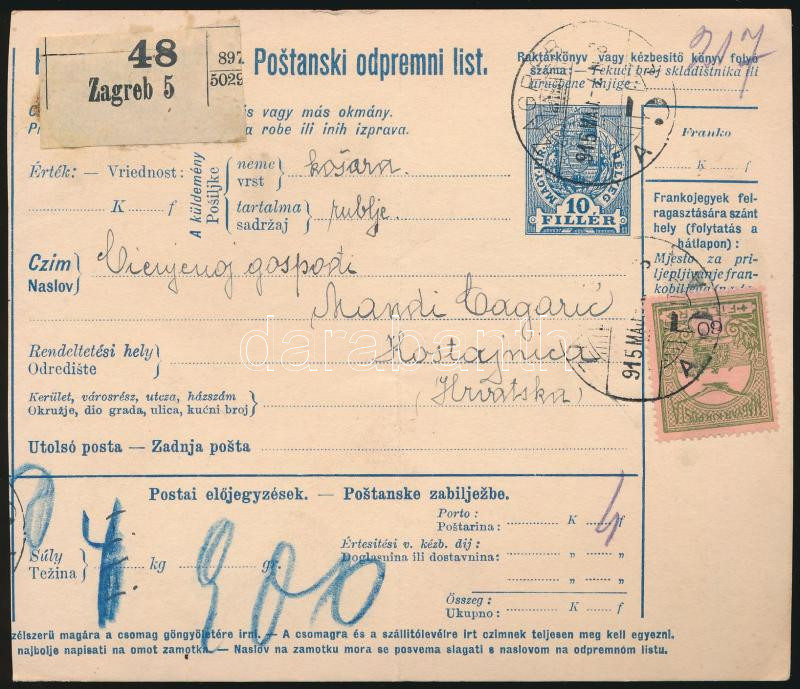 48
Zagreb 5
897
5029
Poštanski odpremni list.
Raktárkönyv vagy kézbesitő könyv folyó
száma: — Tekući broj skladištnika ili
uručbene knjige:
217
is vagy más okmány.
a robe ili inih izprava.
Érték: — Vriednost:
K f
A küldemény
Pošiljke
neme
vrst
košara
tartalma
sadržaj
rublje.
MAGY. KIR.
10
FILLÉR
915 MÁJ.
A
Franko
K f
Frankojegyek fel-
ragasztására szánt
hely (folytatás a
hátlapon):
Mjesto za pri-
ljepljivanje fran-
Czim
Naslov
Cienjenoj gospodi
Mandi Cagarić
Rendeltetési hely
Odredište
Kostajnica
(Hrvatska)
Kerület, városrész, utcza, házszám
Okružje, dio grada, ulica, kućni broj
915 MÁJ.
A
60
MAGYAR KIR. POSTA
Utolsó posta — Zadnja pošta
Postai előjegyzések. — Poštanske zabilježbe.
Porto:
Poštarina: K f
4
Értesitési v. kézb. dij:
Doglasnina ili dostavnina: „ „
„ „
Súly
Težina
4 kg 900 gr.
Összeg:
Ukupno: K f
zélszerü magára a csomag göngyöletére irni. — A csomagra és a szállitólevélre irt czimnek teljesen meg kell egyezni.
najbolje napisati na omot zamotka. — Naslov na zamotku mora se posvema slagati s naslovom na odpremnom listu.
darabanth.com